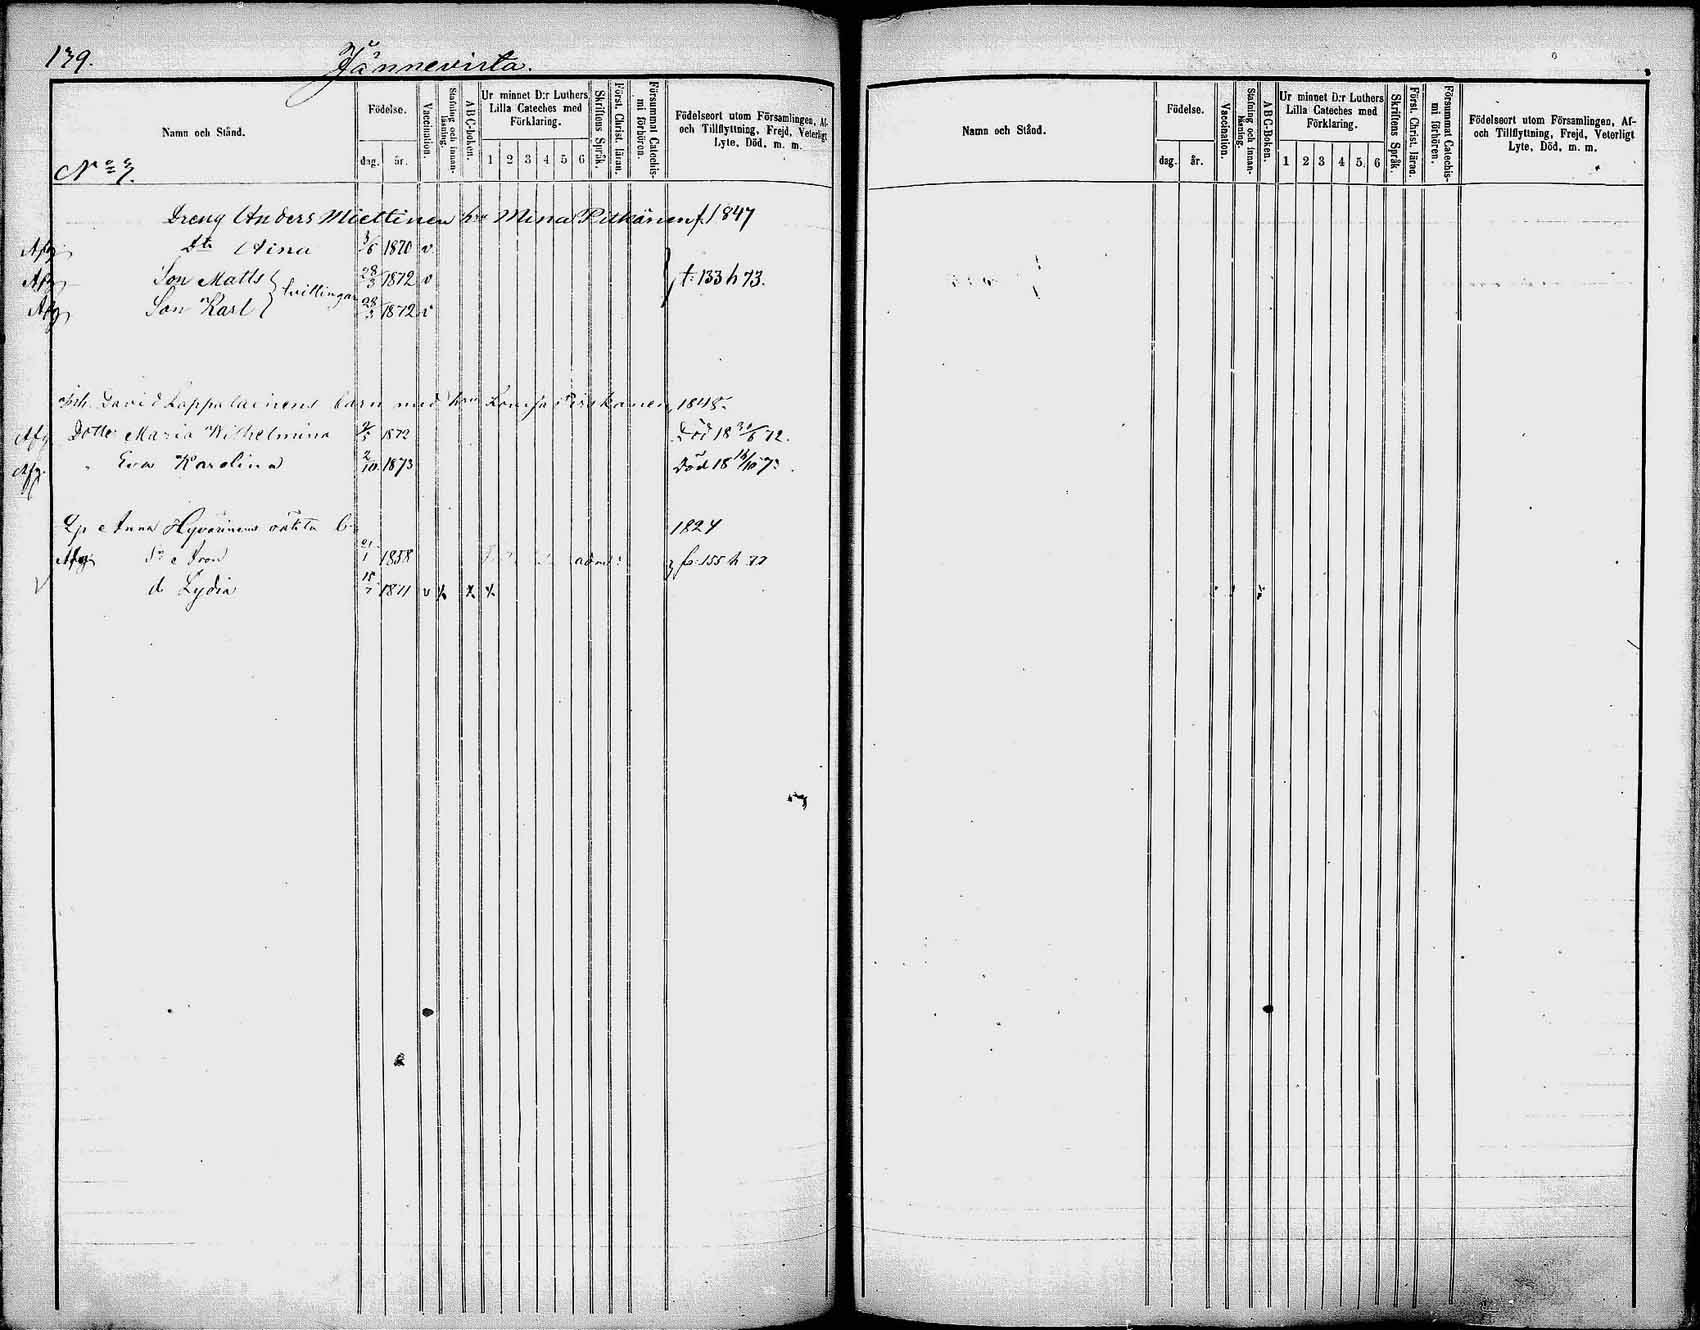 139.
Jännevirta.
Namn och Stånd.
Födelse.
dag.
år.
Vaccination.
Stafning och innanläsning.
ABC-boken.
Ur minnet D:r Luthers Lilla Cateches med Förklaring.
1 2 3 4 5 6
Skriftens Språk.
Först. Christ. läran.
Försummat Catechismi förhören.
Födelseort utom Församlingen, Af- och Tillflyttning, Frejd, Veterligt Lyte, Död, m. m.
No 7.
Dreng Anders Miettinen hru Mina Pitkänen f. 1847
Afg Dtr Aina 3/6 1870 v
Afg Son Matts 28/3 1872 v
tvillingar
} f. 133 h 73.
Afg Son Karl 28/3 1872 v
David Lappalainens barn med hru 1848.
Afg Dotter Maria Wilhelmina 1872 Död 18 30/6 72.
Afg. " Eva Karolina 2/10 1873 Död 18 73.
Anna Hyvärinens oäkta b. 1824
Afg 1858 adm: fr 155 h 77
d. Lydia 15/7 1871 v x x x
Namn och Stånd.
Födelse.
dag.
år.
Vaccination.
Stafning och innanläsning.
ABC-Boken.
Ur minnet D:r Luthers Lilla Cateches med Förklaring.
1 2 3 4 5 6
Skriftens Språk.
Först. Christ. läran.
Försummat Catechismi förhören.
Födelseort utom Församlingen, Af- och Tillflyttning, Frejd, Veterligt Lyte, Död, m. m.